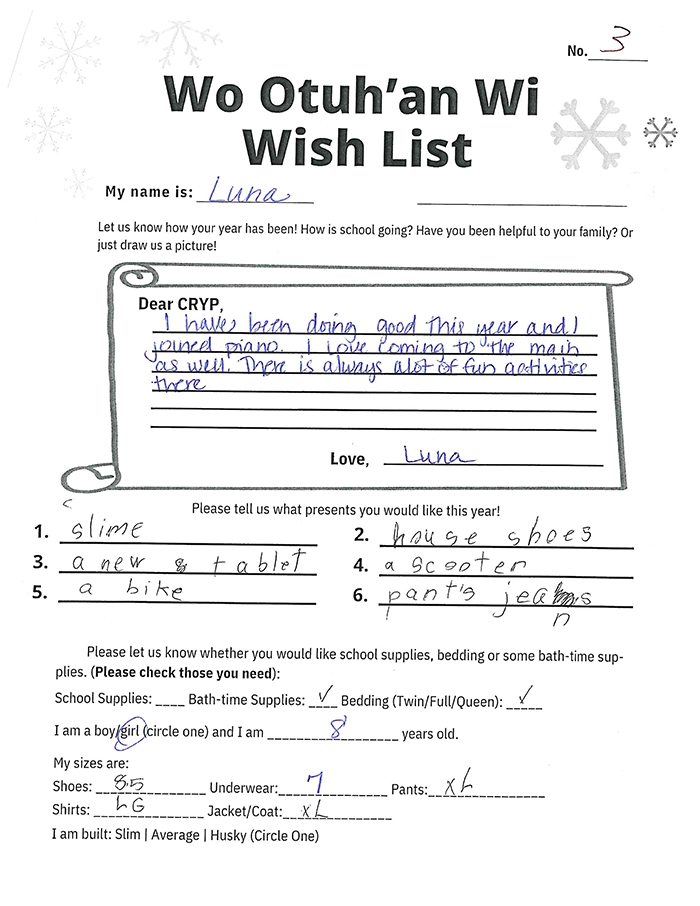 No. 3
Wo Otuh’an Wi
Wish List
My name is: Luna
Let us know how your year has been! How is school going? Have you been helpful to your family? Or
just draw us a picture!
Dear CRYP,
I have been doing good this year and I
joined piano. I love coming to the main
as well. There is always alot of fun activities
there
Love, Luna
Please tell us what presents you would like this year!
1. slime 2. house shoes
3. a new tablet 4. a scooter
5. a bike 6. pant's jeans
Please let us know whether you would like school supplies, bedding or some bath-time sup-
plies. (Please check those you need):
School Supplies: ____ Bath-time Supplies: ✓ Bedding (Twin/Full/Queen): ✓
I am a boy/girl (circle one) and I am 8 years old.
My sizes are:
Shoes: 8.5 Underwear: 7 Pants: XL
Shirts: LG Jacket/Coat: XL
I am built: Slim | Average | Husky (Circle One)